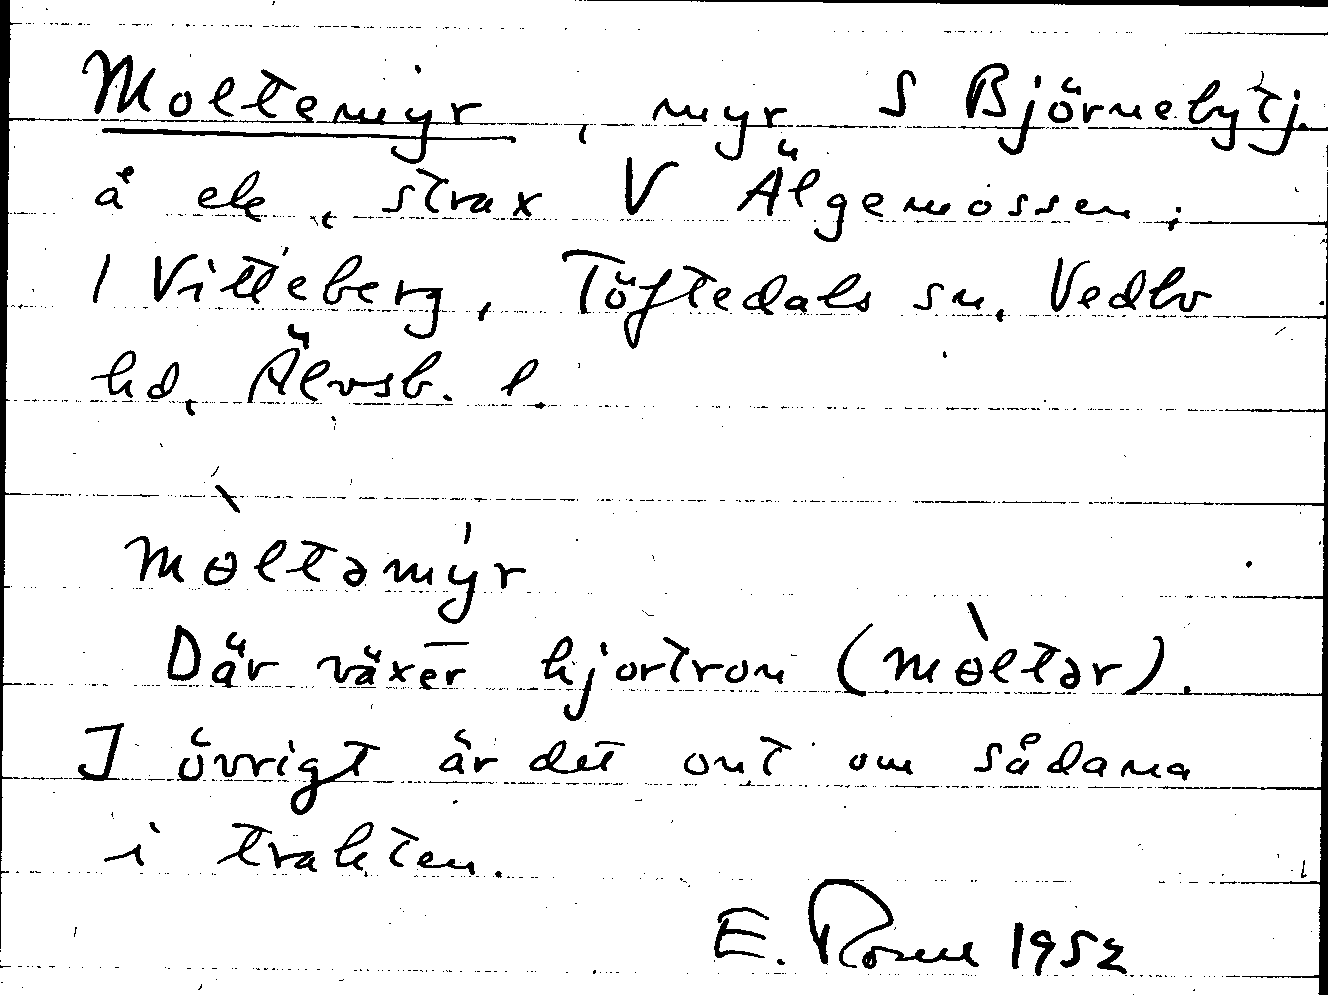 Moltemyr, myr S Björnebytj.
å ek, strax V Älgemossen,
1 Vitteberg, Töftedals sn, Vedbo
hd, Älvsb. l.
mòltəmýr
Där växer hjortron (mòltər).
I övrigt är det ont om sådana
i trakten.
E. 1952